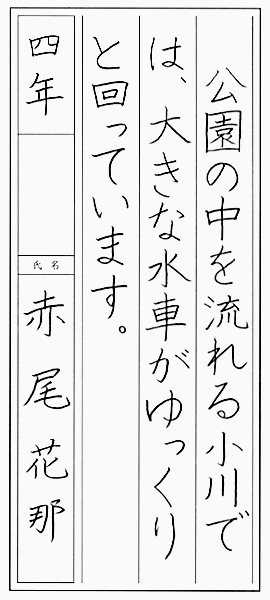 公園の中を流れる小川で
は、大きな水車がゆっくり
と回っています。
四年
氏名
赤尾花那